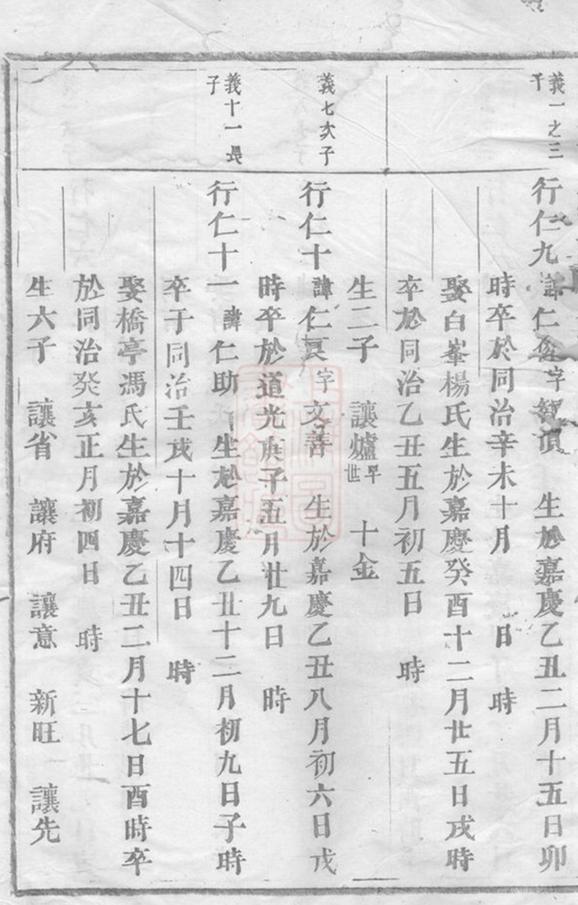 義一之三子
行仁九 諱仁 字 生於嘉慶乙丑二月十五日卯
時卒於同治辛未十月 日 時
娶白峯楊氏生於嘉慶癸酉十二月廿五日戌時
卒於同治乙丑五月初五日 時
生二子 讓爐早世 十金
義七次子
行仁十 諱仁良字文善 生於嘉慶乙丑八月初六日戌
時卒於道光庚子五月廿九日 時
義十一長子
行仁十一 諱仁助 生於嘉慶乙丑十二月初九日子時
卒于同治壬戌十月十四日 時
娶橋亭馮氏生於嘉慶乙丑二月十七日酉時卒
於同治癸亥正月初四日 時
生六子 讓省 讓府 讓意 新旺 讓先